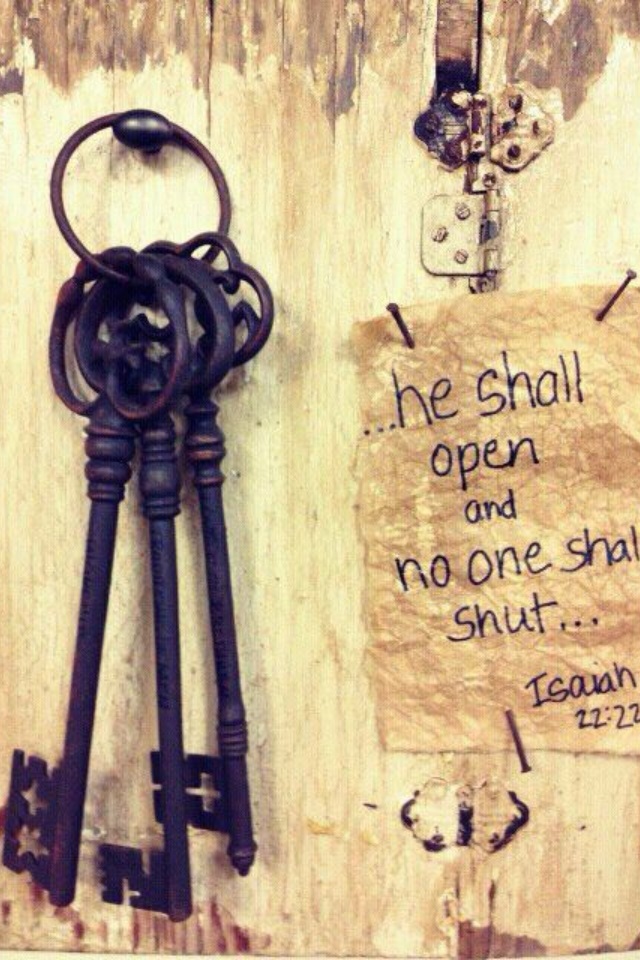 ...he shall
open
and
no one shal
shut...
Isaiah
22:22